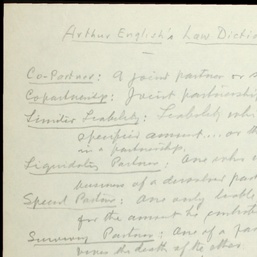 Arthur English's Law Dicti
Co-Partner: A joint partner or s
Copartnership: Joint partnership
Limited Liability: Liability who
specified amount... or th
in a partnership.
Liquidating Partner: One who
business of a dissolved part
Special Partner: One only liable
for the amount he contribut
Surviving Partner: One of a pa
vives the death of the other.